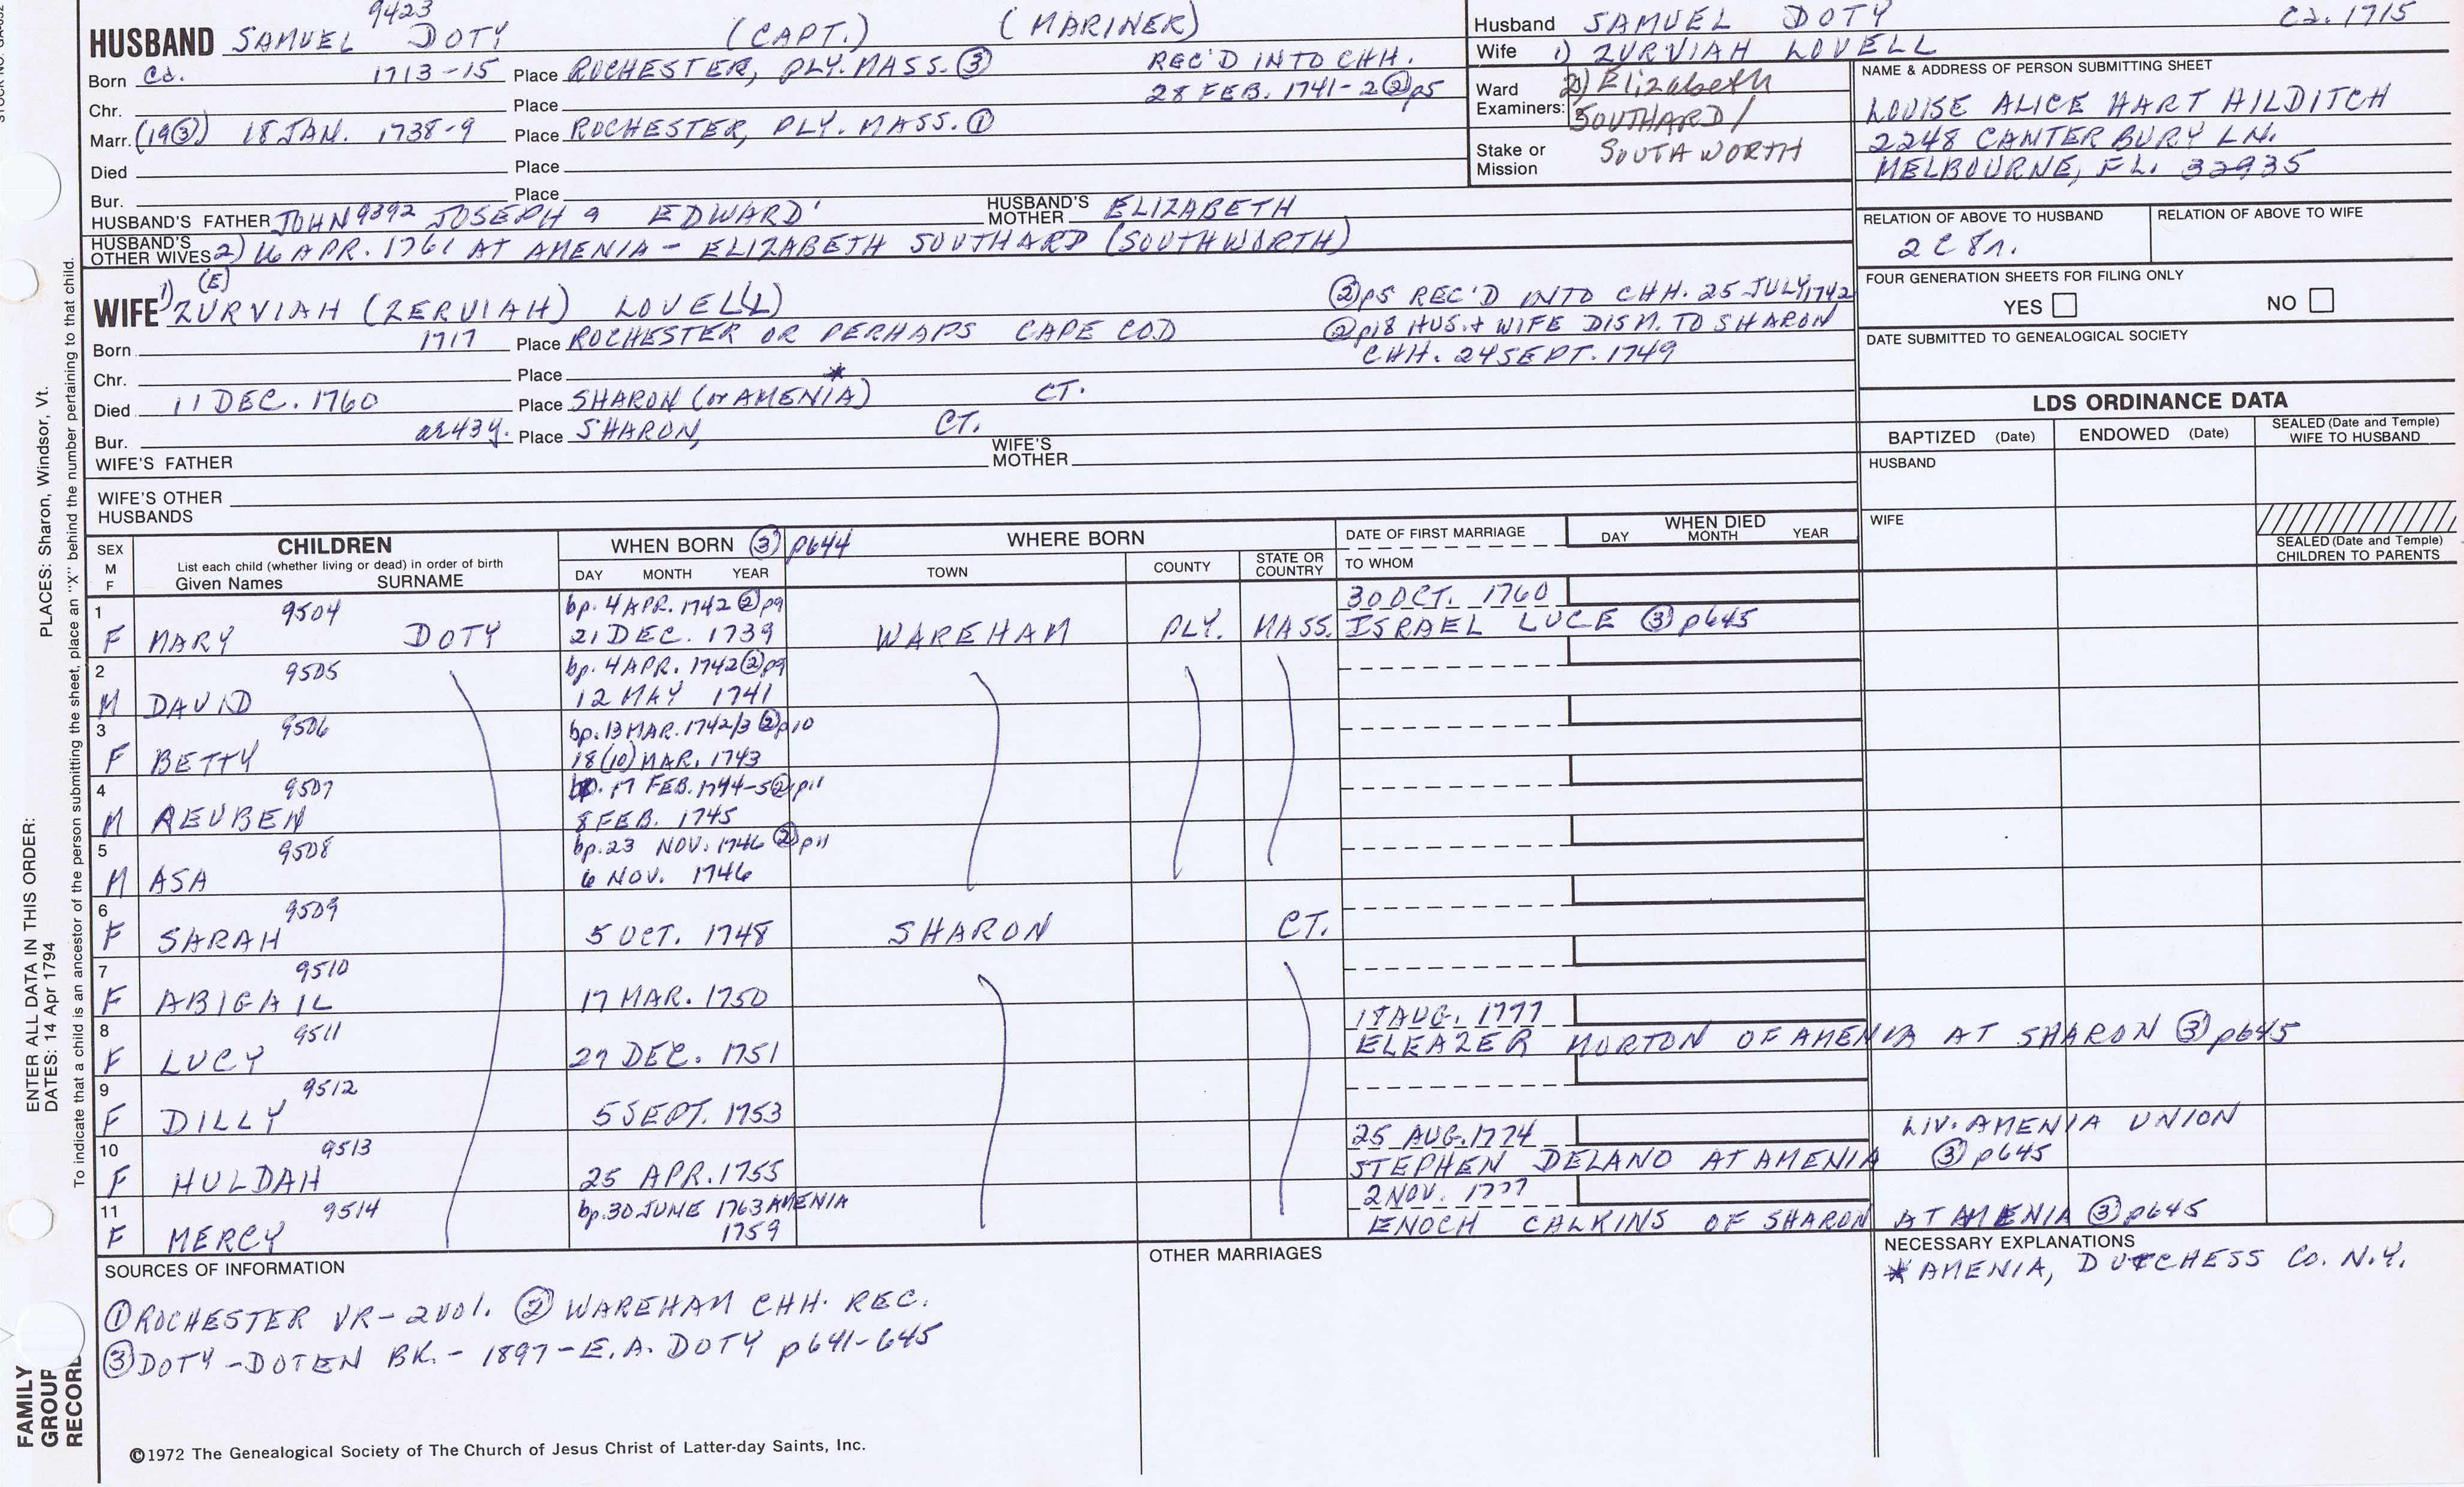 9423
HUSBAND SAMUEL DOTY (CAPT.) (MARINER)
Born Ca. 1713-15 Place ROCHESTER, PLY. MASS. ③ REC'D INTO CHH.
28 FEB. 1741-2 ② p5
Chr. Place
Marr. (19③) 18 JAN. 1738-9 Place ROCHESTER, PLY. MASS. ①
Died Place
Bur. Place
HUSBAND'S FATHER JOHN 9392 JOSEPH 9 EDWARD' HUSBAND'S MOTHER ELIZABETH
HUSBAND'S OTHER WIVES 2) 16 APR. 1761 AT AMENIA - ELIZABETH SOUTHARD (SOUTHWORTH)
Husband SAMUEL DOTY Ca. 1715
Wife 1) ZURVIAH LOVELL
Ward 2) Elizabeth
Examiners: SOUTHARD/
Stake or Mission SOUTHWORTH
NAME & ADDRESS OF PERSON SUBMITTING SHEET
LOUISE ALICE HART HILDITCH
2248 CANTERBURY LN.
MELBOURNE, FL. 32935
RELATION OF ABOVE TO HUSBAND RELATION OF ABOVE TO WIFE
2C 8r.
FOUR GENERATION SHEETS FOR FILING ONLY
YES NO
DATE SUBMITTED TO GENEALOGICAL SOCIETY
(E)
WIFE 1) ZURVIAH (ZERVIAH) LOVEL(L) ② p5 REC'D INTO CHH. 25 JULY 1742
② p18 HUS. + WIFE DISM. TO SHARON
CHH. 24 SEPT. 1749
Born 1717 Place ROCHESTER OR PERHAPS CAPE COD
Chr. Place
Died 11 DEC. 1760 Place SHARON (or AMENIA)* CT.
Bur. ae 43y. Place SHARON, CT.
WIFE'S FATHER WIFE'S MOTHER
WIFE'S OTHER HUSBANDS
LDS ORDINANCE DATA
BAPTIZED (Date) ENDOWED (Date) SEALED (Date and Temple) WIFE TO HUSBAND
HUSBAND
WIFE
SEALED (Date and Temple) CHILDREN TO PARENTS
SEX M F CHILDREN WHEN BORN ③ p644 WHERE BORN DATE OF FIRST MARRIAGE WHEN DIED
List each child (whether living or dead) in order of birth
Given Names SURNAME DAY MONTH YEAR TOWN COUNTY STATE OR COUNTRY TO WHOM DAY MONTH YEAR
1 9504 bp. 4 APR. 1742 ② p9 30 OCT. 1760
F MARY DOTY 21 DEC. 1739 WAREHAM PLY. MASS. ISRAEL LUCE ③ p645
2 9505 bp. 4 APR. 1742 ② p9
M DAVID 12 MAY 1741
3 9506 bp. 13 MAR. 1742/3 ② p10
F BETTY 18(10) MAR. 1743
4 9507 bp. 17 FEB. 1744-5 ② p11
M REUBEN 8 FEB. 1745
5 9508 bp. 23 NOV. 1746 ② p11
M ASA 6 NOV. 1746
6 9509
F SARAH 5 OCT. 1748 SHARON CT.
7 9510
F ABIGAIL 17 MAR. 1750
8 9511 18 AUG. 1777
F LUCY 27 DEC. 1751 ELEAZER MORTON OF AMENIA AT SHARON ③ p645
9 9512
F DILLY 5 SEPT. 1753
10 9513 25 AUG. 1774 LIV. AMENIA UNION
F HULDAH 25 APR. 1755 STEPHEN DELANO AT AMENIA ③ p645
11 9514 bp. 30 JUNE 1763 AMENIA 2 NOV. 1777
F MERCY 1759 ENOCH CALKINS OF SHARON AT AMENIA ③ p645
SOURCES OF INFORMATION
① ROCHESTER VR - 2 vol. ② WAREHAM CHH. REC.
③ DOTY - DOTEN BK. - 1897 - E.A. DOTY p641-645
OTHER MARRIAGES
NECESSARY EXPLANATIONS
* AMENIA, DUTCHESS Co. N.Y.
©1972 The Genealogical Society of The Church of Jesus Christ of Latter-day Saints, Inc.
FAMILY
GROUP
RECORD
ENTER ALL DATA IN THIS ORDER: PLACES: Sharon, Windsor, Vt.
DATES: 14 Apr 1794
To indicate that a child is an ancestor of the person submitting the sheet, place an "X" behind the number pertaining to that child.